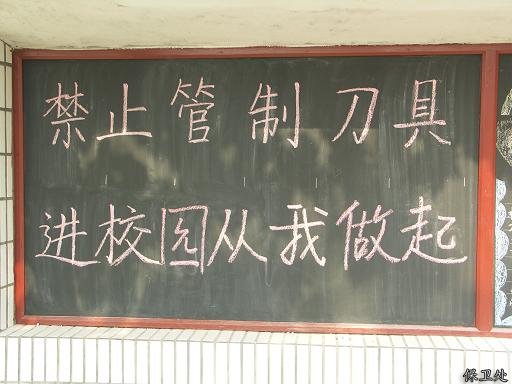 禁止管制刀具
进校园从我做起
保卫处